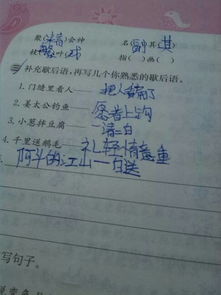 聚精会神 名副其实
指( )画( )
三 补充歇后语,再写几个你熟悉的歇后语。
1. 门缝里看人——把人看扁了
2. 姜太公钓鱼——愿者上钩
3. 小葱拌豆腐——一清二白
4. 千里送鹅毛——礼轻情意重
阿斗的江山——白送
写句子。